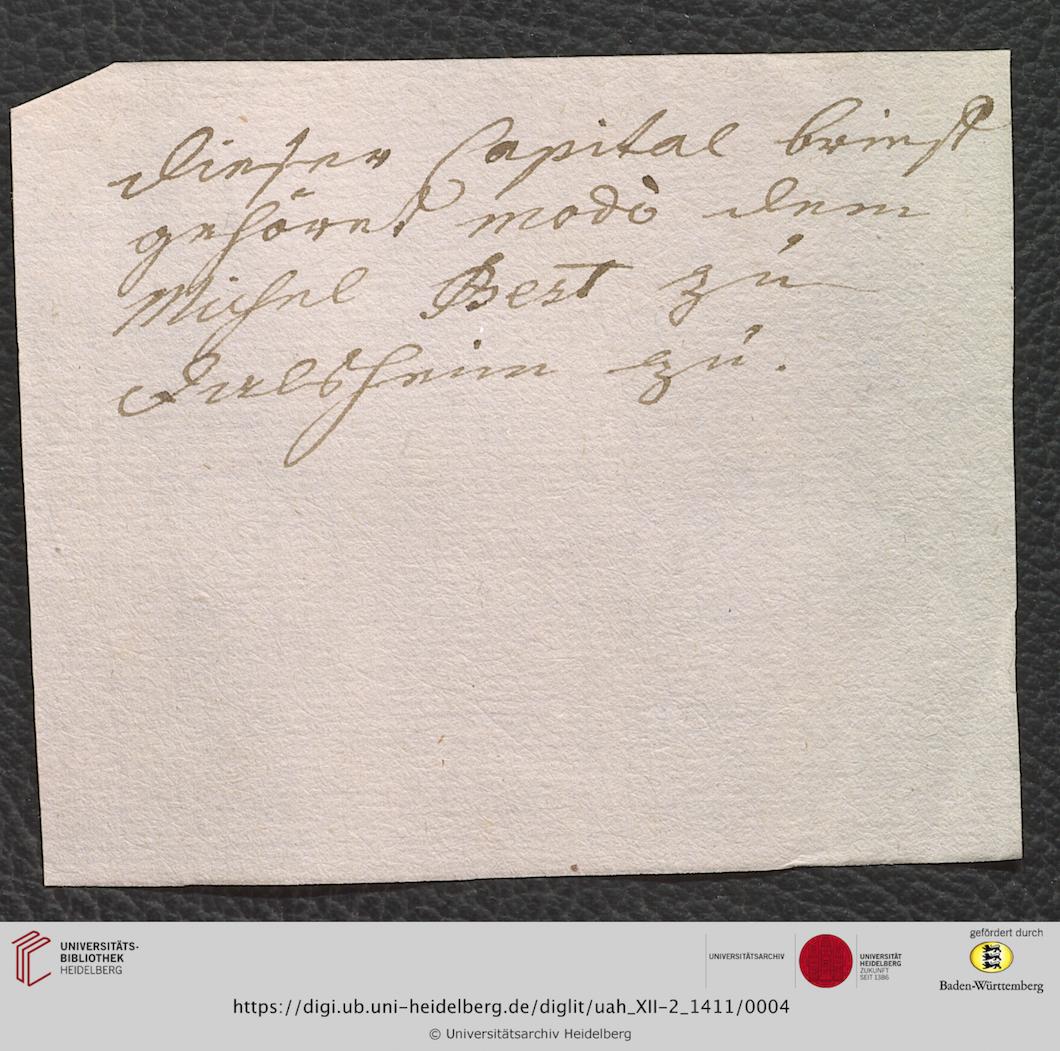 dieser Capital brieff
gehöret modò dem
Michel Best zu
Dalsheim zu.
UNIVERSITÄTS-
BIBLIOTHEK
HEIDELBERG
UNIVERSITÄTSARCHIV
UNIVERSITÄT
HEIDELBERG
ZUKUNFT
SEIT 1386
gefördert durch
Baden-Württemberg
https://digi.ub.uni-heidelberg.de/diglit/uah_XII-2_1411/0004
© Universitätsarchiv Heidelberg